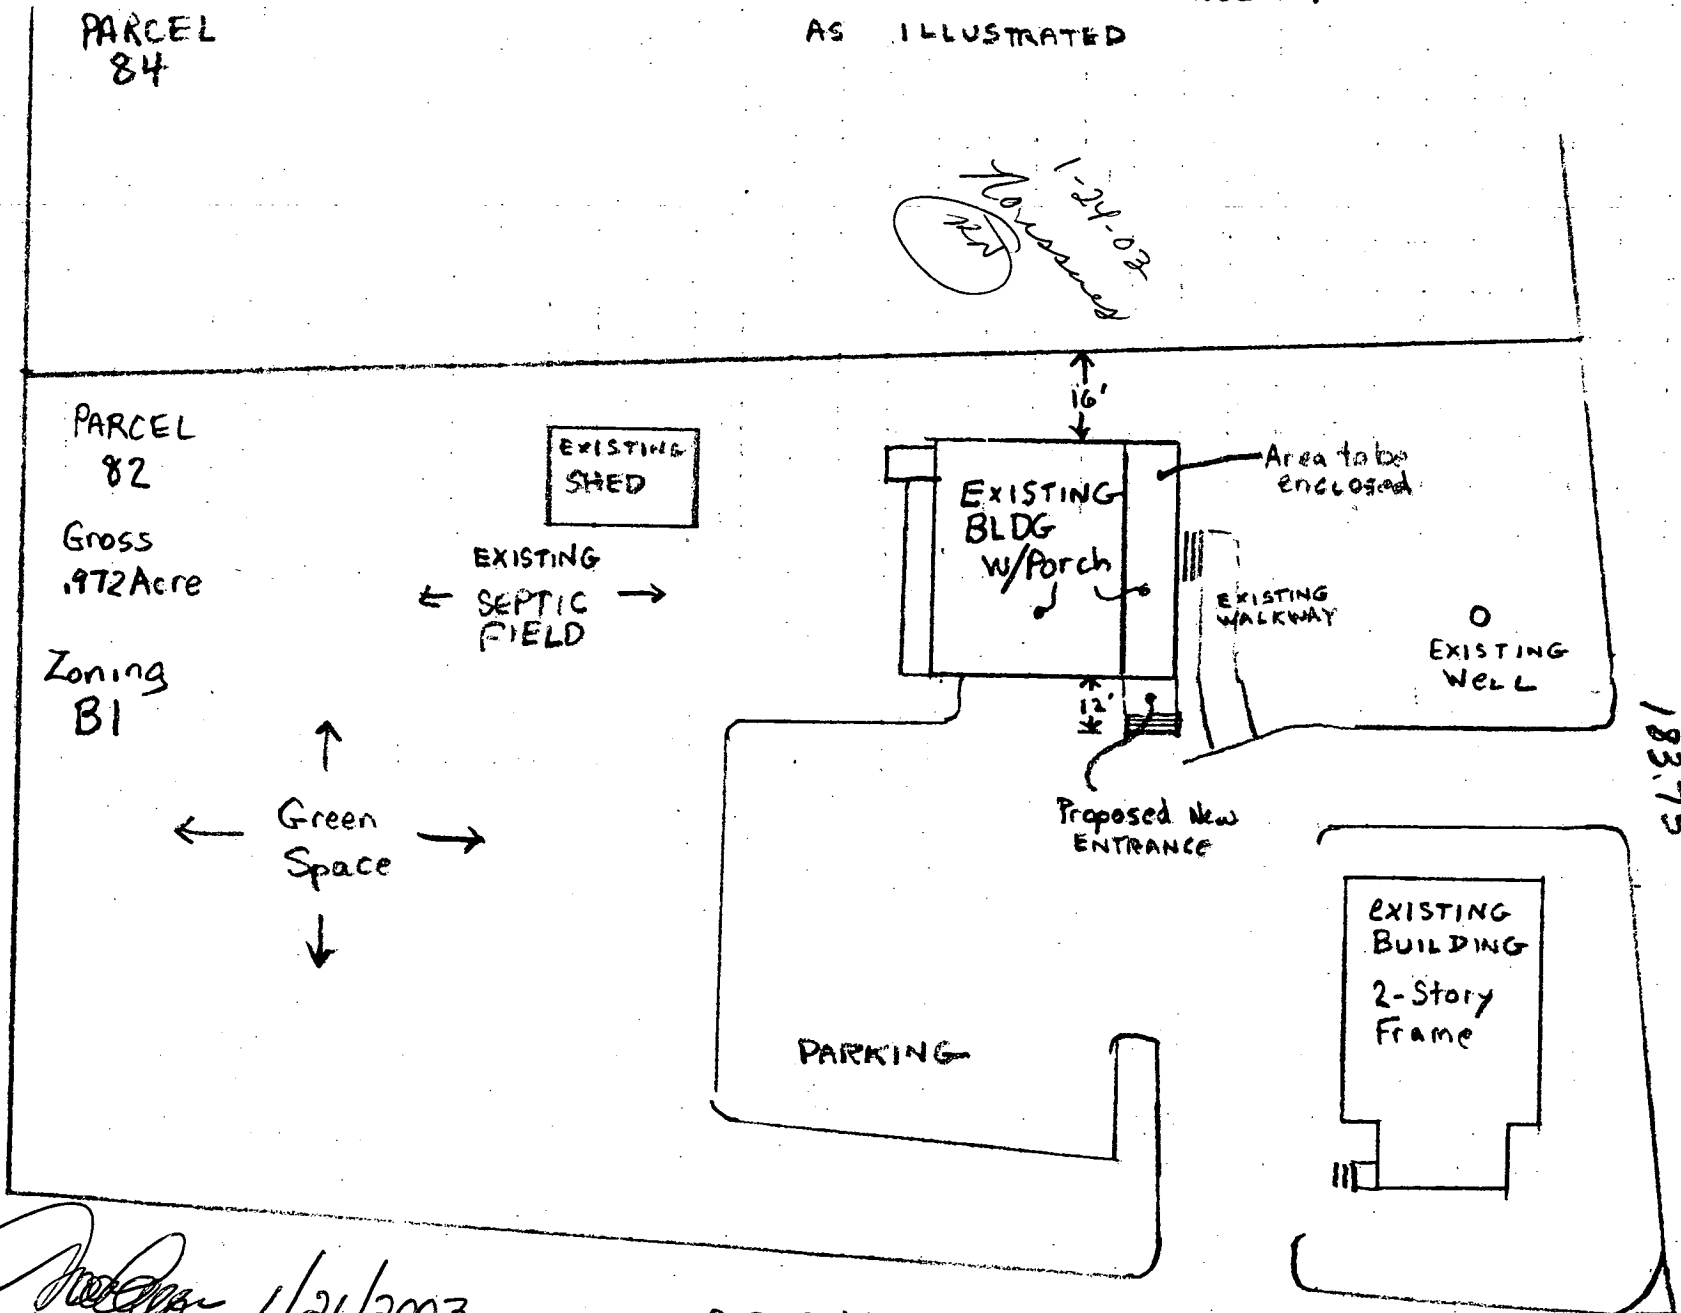 PARCEL
84
AS ILLUSTRATED
1-24-03
No issues
RN
16'
PARCEL
82
Gross
.972 Acre
Zoning
B1
EXISTING
SHED
EXISTING
SEPTIC
FIELD
EXISTING
BLDG
W/Porch
Area to be
enclosed
EXISTING
WALKWAY
EXISTING
WELL
12'
183.75
Green
Space
Proposed New
ENTRANCE
EXISTING
BUILDING
2-Story
Frame
PARKING